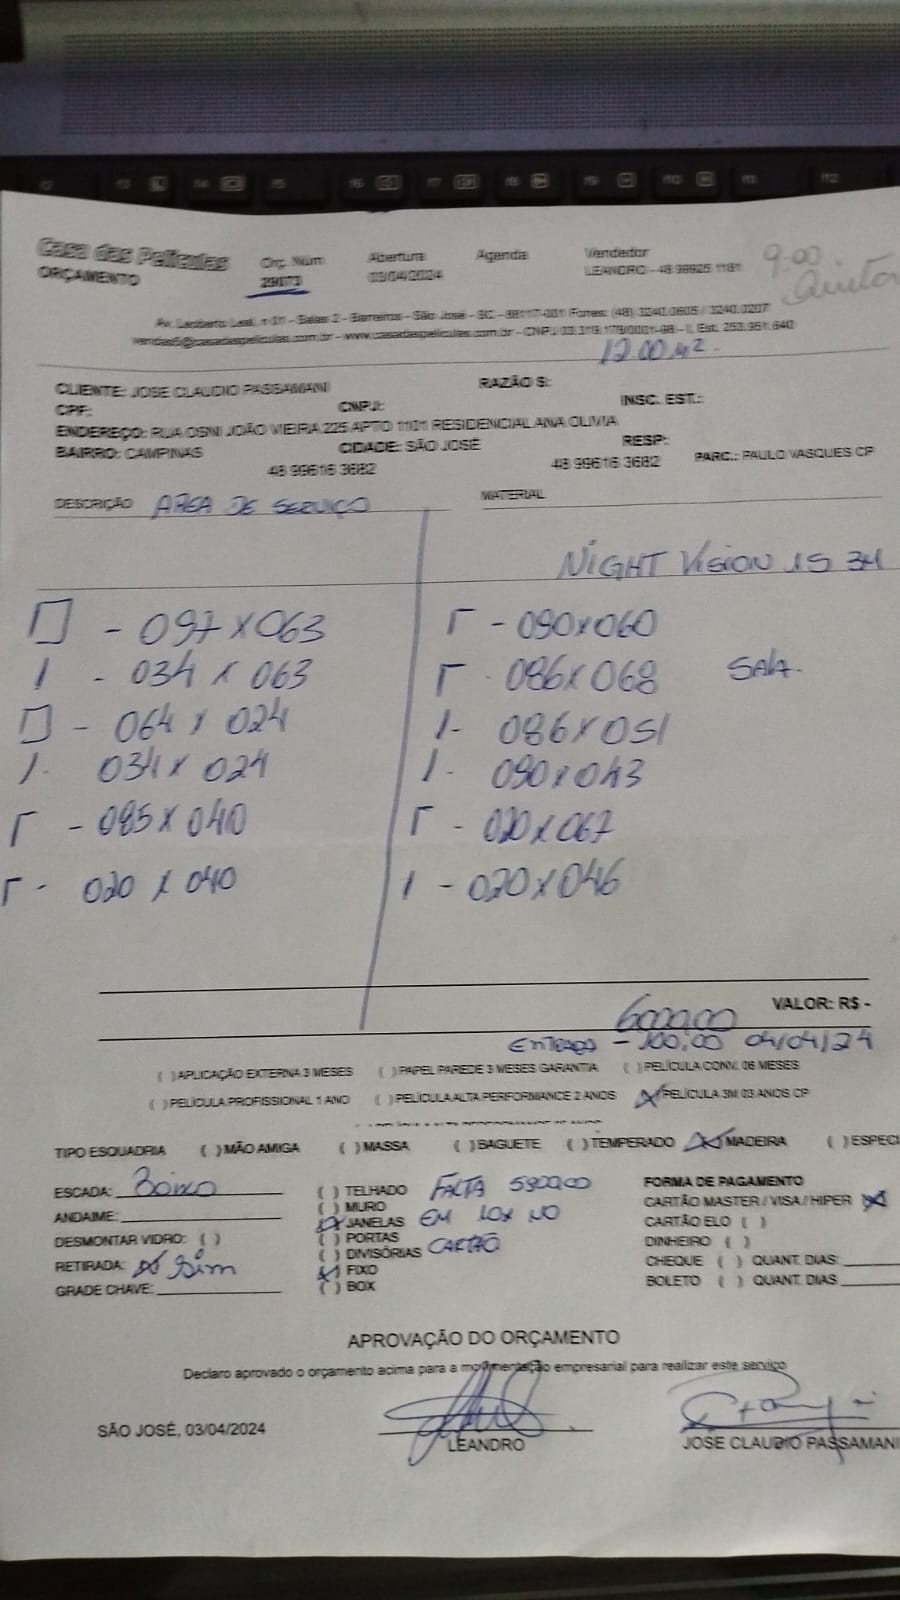 Casa das Películas Orç. Núm Abertura Agenda Vendedor 9:00
ORÇAMENTO 29073 03/04/2024 LEANDRO - 48 99925 1181 Quinta
Av. Leoberto Leal, - Salas 2 - Barreiros - São José - SC - 88117-001 Fones: (48) 3240.0605 / 3240.0207
vendas5@casadaspeliculas.com.br - www.casadaspeliculas.com.br - CNPJ - I. Est. 253.951.640
1200 M2.
CLIENTE: JOSE CLAUDIO PASSAMANI RAZÃO S:
CPF: CNPJ: INSC. EST.:
ENDEREÇO: RUA OSNI JOÃO VIEIRA 225 APTO 1101 RESIDENCIAL ANA OLIVIA
BAIRRO: CAMPINAS CIDADE: SÃO JOSÉ RESP:
48 99616 3682 48 99616 3682 PARC.: PAULO VASQUES CP
DESCRIÇÃO AREA DE SERVIÇO MATERIAL
NIGHT VISION 15 3M
- 097 X 063 - 090X060
- 034 X 063 - 086X068 SALA.
- 064 X 024 - 086X051
- 034X 024 - 090X043
- 085X 040 - 020X067
- 020 X 040 - 020X046
VALOR: R$ -
6000,00
ENTRADA - 100,00 04/04/24
( ) APLICAÇÃO EXTERNA 3 MESES ( ) PAPEL PAREDE 3 MESES GARANTIA ( ) PELÍCULA CONV. 06 MESES
( ) PELÍCULA PROFISSIONAL 1 ANO ( ) PELÍCULA ALTA PERFORMANCE 2 ANOS (X) PELÍCULA 3M 03 ANOS CP
TIPO ESQUADRIA ( ) MÃO AMIGA ( ) MASSA ( ) BAGUETE ( ) TEMPERADO (X) MADEIRA ( ) ESPECI
ESCADA: ( ) TELHADO FALTA 5900,00 FORMA DE PAGAMENTO
ANDAIME: ( ) MURO CARTÃO MASTER / VISA / HIPER (X)
(X) JANELAS EM 10X NO CARTÃO ELO ( )
DESMONTAR VIDRO: ( ) ( ) PORTAS DINHEIRO ( )
RETIRADA: (X) Sim ( ) DIVISÓRIAS CARTÃO CHEQUE ( ) QUANT. DIAS:
(X) FIXO
GRADE CHAVE: ( ) BOX BOLETO ( ) QUANT. DIAS
APROVAÇÃO DO ORÇAMENTO
Declaro aprovado o orçamento acima para a movimentação empresarial para realizar este serviço
SÃO JOSÉ, 03/04/2024 LEANDRO JOSE CLAUDIO PASSAMANI